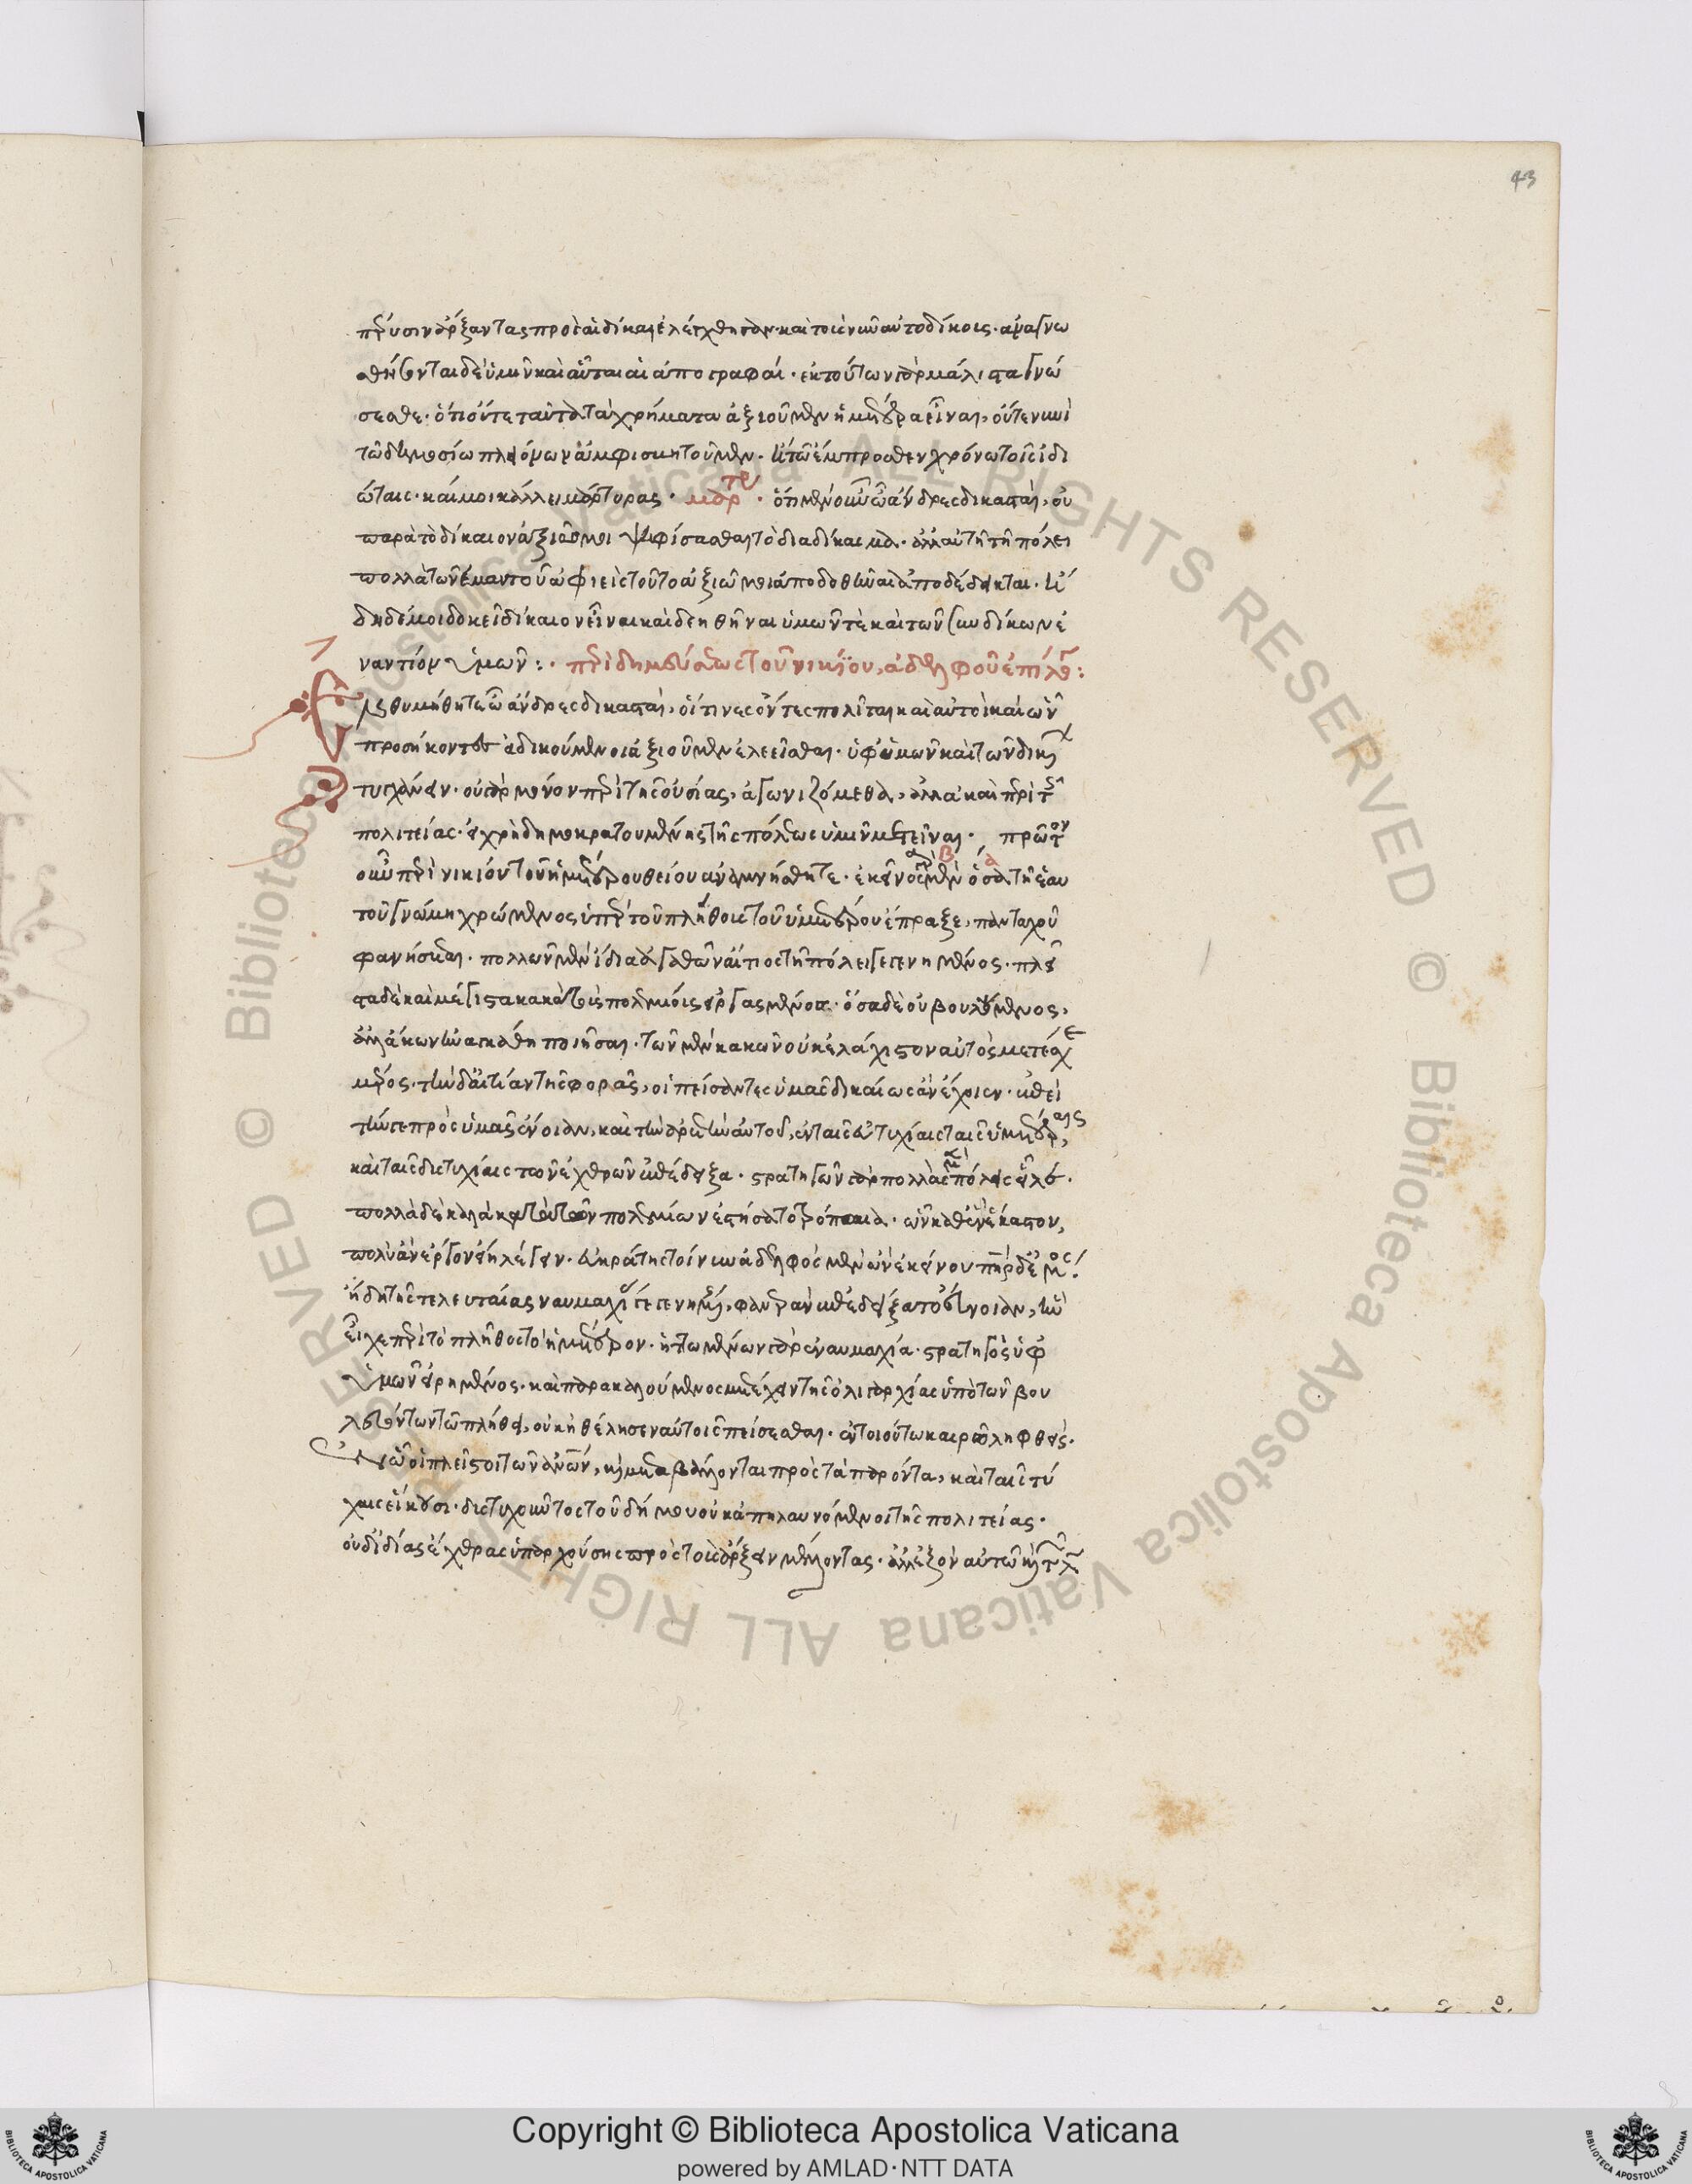 πέρυσιν ἄρξαντας πρὸς αἱ δίκαι ἐλέγχθησαν· καὶ τοῖς ναυτοδίκοις· ἀναγνω
σθήσονται δὲ ὑμῖν καὶ αὗται αἱ ἀπογραφαί· ἐκ τούτων γὰρ μάλιστα γνώ
σεσθε· ὅτι οὔτε ταῦτα τὰ χρήματα ἀξιοῦμεν ἡμέτερα εἶναι, οὔτε νυνὶ
τῶ δημοσίω πλειόνων ἀμφισβητοῦμεν· ἢ τῶ ἔμπροσθεν χρόνω τοῖς ἰδι
ώταις· καί μοι κάλει μάρτυρας· μάρτυρες· ὅτι μὲν οὖν ὦ ἄνδρες δικασταί, οὐ
παρὰ τὸ δίκαιον ἀξιῶ μοι ψηφίσασθαι τὸ διαδίκασμα· ἀλλ' αὐτῆ τῆ πόλει
πολλὰ τῶν ἐμαυτοῦ ἀφιεὶς τοῦτο ἀξιῶ μοι ἀποδοθῆναι ἀποδέδεικται· ἤ
δη δέ μοι δοκεῖ δίκαιον εἶναι καὶ δεηθῆναι ὑμῶν τὲ καὶ τῶν συνδίκων ἐ
ναντίον ὑμῶν:· περὶ δημεύσεως τοῦ νικίου, ἀδελφοῦ ἐπίλογος:
Ἐνθυμήθητε ὦ ἄνδρες δικασταί, οἵτινες ὄντες πολῖται καὶ αὐτοὶ καὶ ὧν
προσήκοντες ἀδικούμενοι ἀξιοῦμεν ἐλεεῖσθαι· ὑφ' ὑμῶν καὶ τῶν δικαίων
τυγχάνειν· οὐ γὰρ μόνον περὶ τῆς οὐσίας, ἀγωνιζόμεθα, ἀλλὰ καὶ περὶ τῆς
πολιτείας· εἰ χρὴ δημοκρατουμένης τῆς πόλεως ὑμῖν μετεῖναι· πρῶτον
οὖν περὶ νικίου τοῦ ἡμετέρου θείου ἀναμνήσθητε· ἐκεῖνος μὲν ὅσα τῆ ἑαυ
τοῦ γνώμη χρώμενος ὑπὲρ τοῦ πλήθους τοῦ ὑμετέρου ἔπραξε, πανταχοῦ
φανήσεται· πολλῶν μὲν ἰδία ἀγαθῶν αἴτιος τῆ πόλει γεγενημένος· πλεῖ
στα δὲ καὶ μέγιστα κακὰ τοὺς πολεμίους εἰργασμένος· ὅσα δὲ οὐ βουλόμενος,
ἀλλ' ἄκων ἠναγκάσθη ποιῆσαι· τῶν μὲν κακῶν οὐκ ἐλάχιστον αὐτὸς μετέσχε
μέρος· τὴν δ' αἰτίαν τῆς συμφορᾶς, οἱ πείσαντες ὑμᾶς δικαίως ἂν ἔχοιεν· ἐπεὶ
τήν γε πρὸς ὑμᾶς εὔνοιαν, καὶ τὴν ἀρετὴν αὐτοῦ, ἐν ταῖς εὐτυχίαις ταῖς ὑμετέραις,
καὶ ταῖς δυστυχίαις τῶν ἐχθρῶν ἐπέδειξα· στρατηγῶν γὰρ πολλὰς μὲν πόλεις εἷλε·
πολλὰ δὲ καλὰ κατὰ τῶν πολεμίων ἔστησε τρόπαια· ὧν καθ' ἓν ἕκαστον,
πολὺ ἂν ἔργον εἴη λέγειν· εὐκράτης τοίνυν ἀδελφὸς μὲν ὢν ἐκείνου πατὴρ δὲ ἐμός·
ἤδη τῆς τελευταίας ναυμαχίας γεγενημένης, φανερὰν ἐπεδείξατο τὴν εὔνοιαν, ἣν
εἶχε περὶ τὸ πλῆθος τὸ ἡμέτερον· ἡττωμένων γὰρ ἐν ναυμαχία· στρατηγὸς ὑφ'
ὑμῶν εἱρημένος· καὶ παρακαλούμενος μετέχειν τῆς ὀλιγαρχίας ὑπὸ τῶν βου
λευόντων τῶ πλήθει, οὐκ ἠθέλησεν αὐτοῖς πείσεσθαι· ἐν τοιούτω καιρῶ ληφθείς·
ἐν ὧ οἱ πλεῖστοι τῶν ἀνθρώπων, καὶ μεταβάλλονται πρὸς τὰ παρόντα, καὶ ταῖς τύ
χαις εἴκουσι· δυστυχοῦντος τοῦ δήμου οὐκ ἀπηλαυνόμενος τῆς πολιτείας·
οὐδ' ἰδίας ἔχθρας ὑπαρχούσης πρὸς τοὺς ἄρξειν μέλλοντας· ἀλλ' ἐξὸν αὐτῶ καὶ τῶν